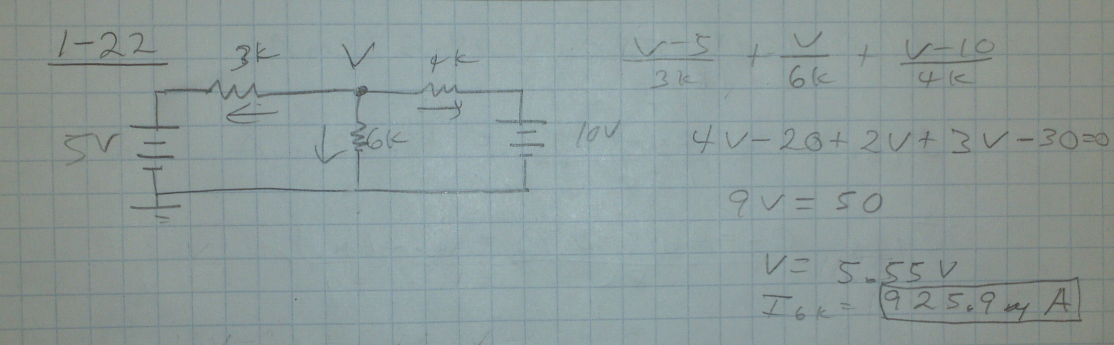 1-22
3K V 4K
5V 6K 10V
V-5/3K + V/6K + V-10/4K
4V-20+2V+3V-30=0
9V = 50
V= 5.55V
I6K= 925.9 A